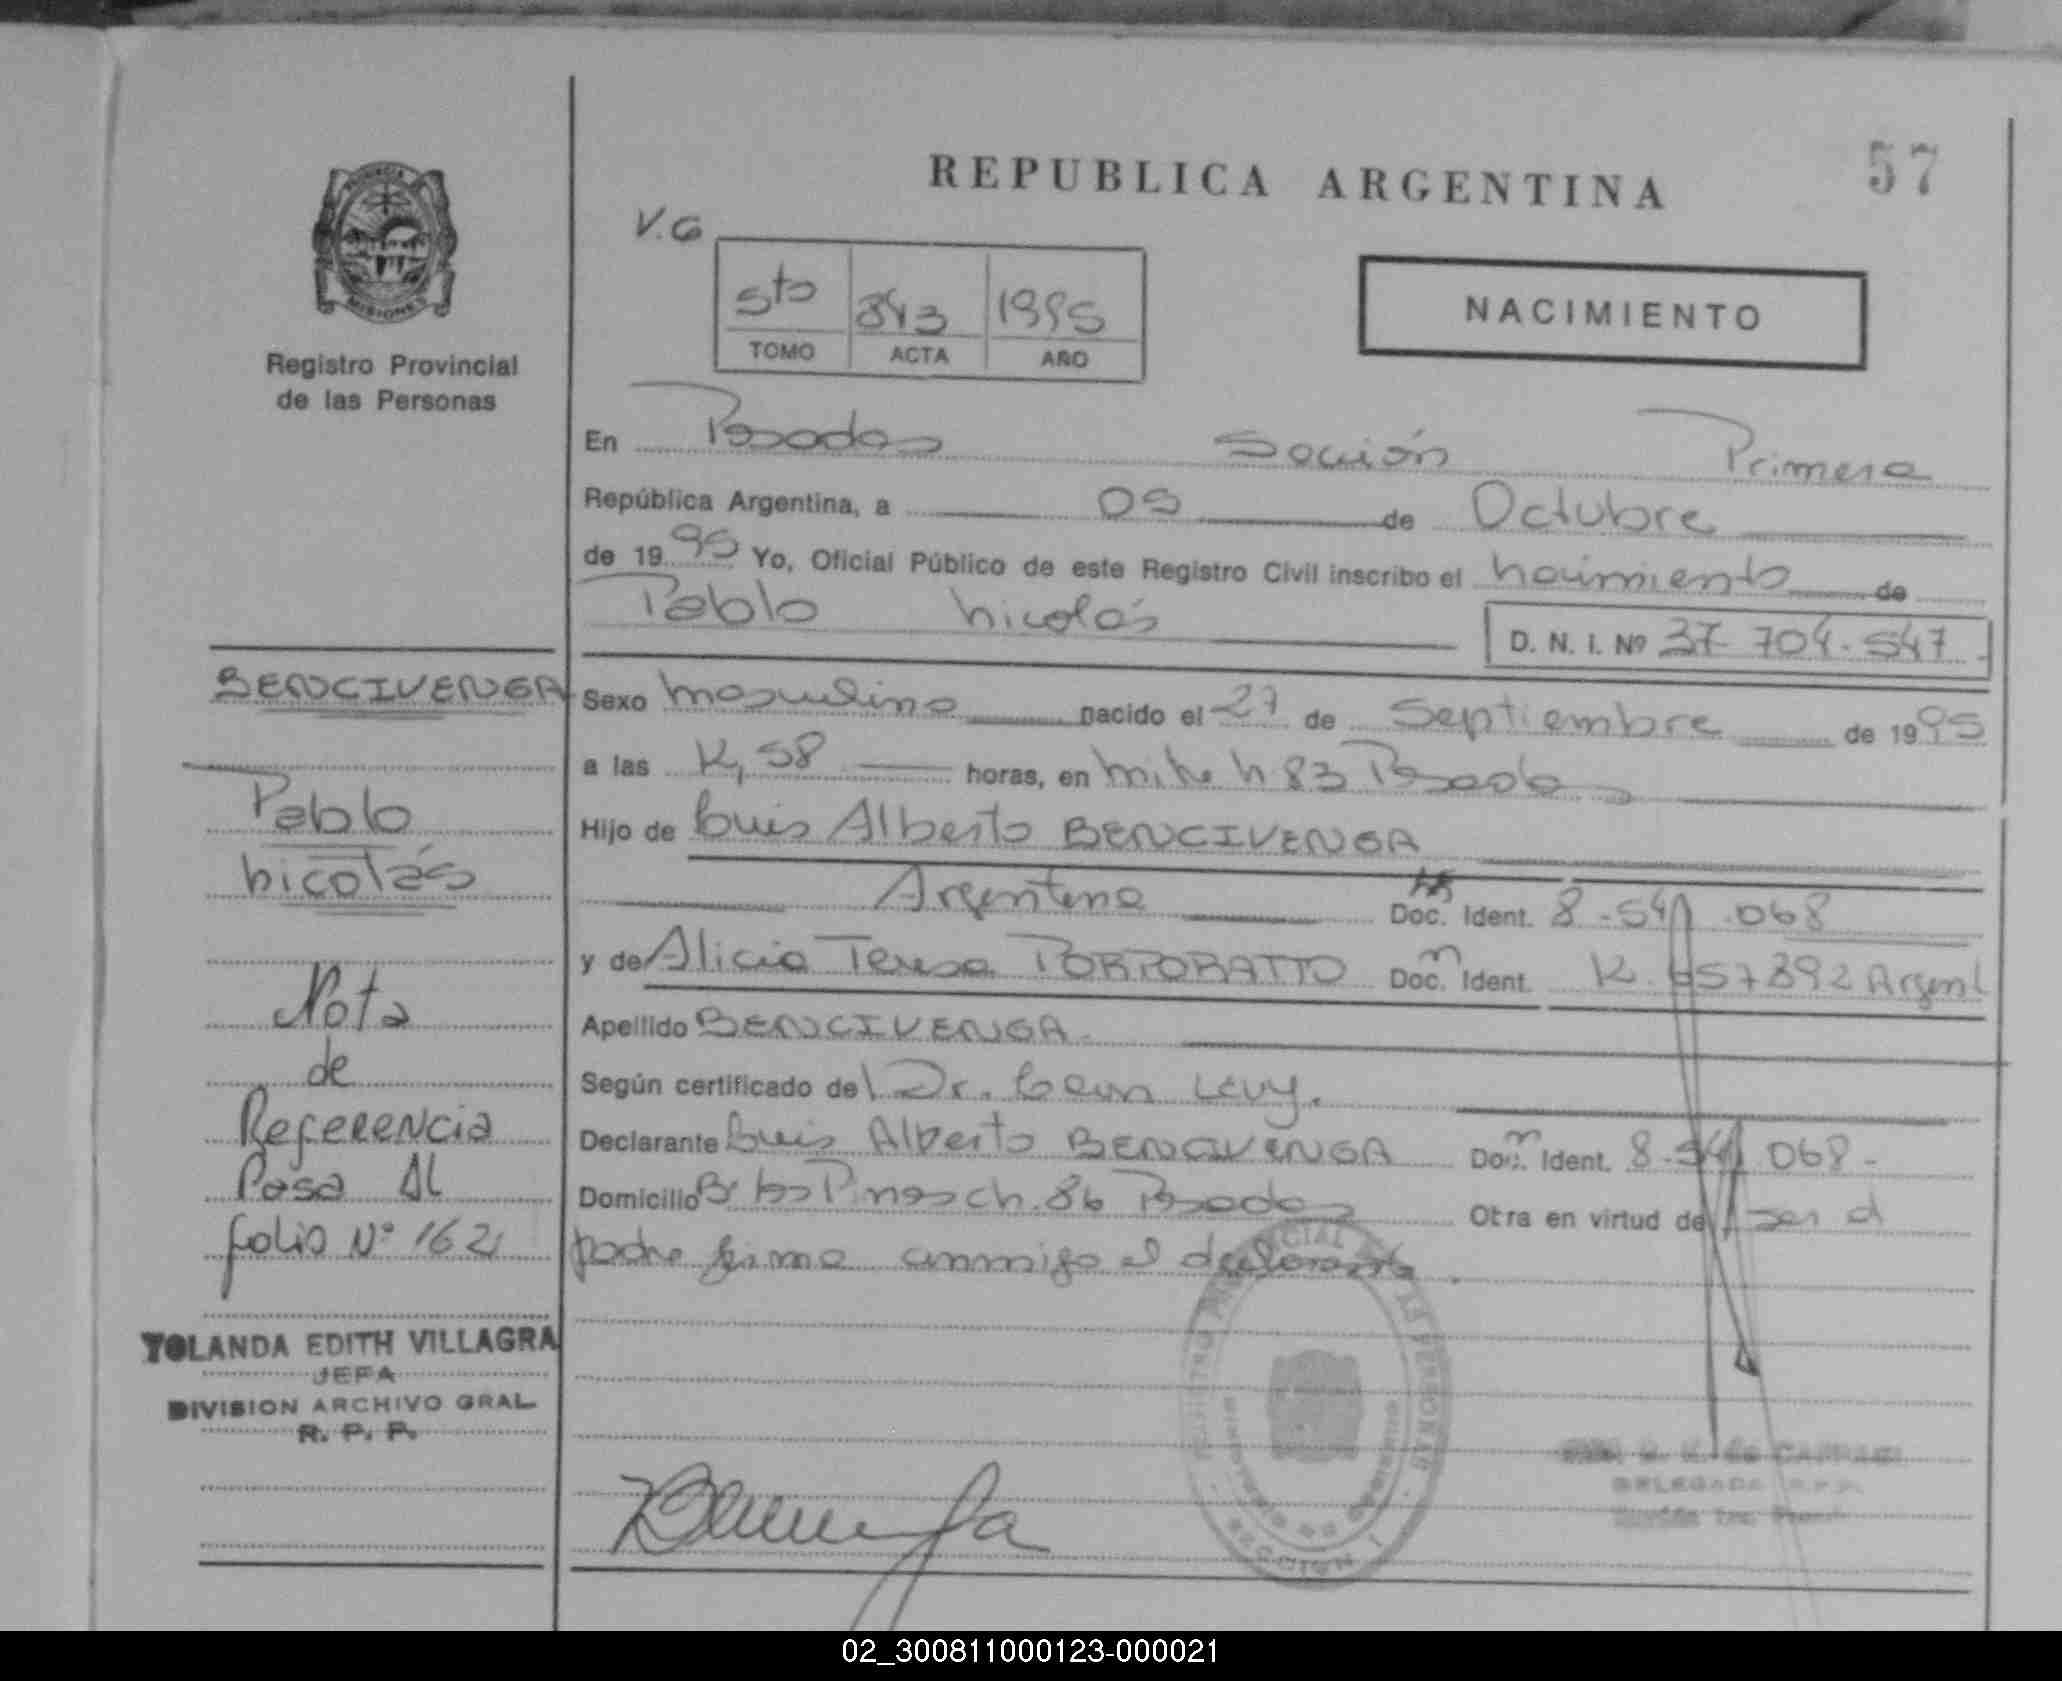 REPUBLICA ARGENTINA
57
PROVINCIA DE
MISIONES
Registro Provincial
de las Personas
V.G
5to 843 1995
TOMO ACTA AÑO
NACIMIENTO
En Posadas Sección Primera
República Argentina, a 05 de Octubre
de 1995 Yo, Oficial Público de este Registro Civil inscribo el nacimiento de
Pablo Nicolás D. N. I. Nº 37.704.547
BENCIVENGA
Sexo masculino nacido el 27 de Septiembre de 1995
a las 58 horas, en 83 Posadas
Pablo
Nicolás
Hijo de Luis Alberto BENCIVENGA
Argentino Doc. Ident. 8.541.068
y de Alicia Teresa PORPORATTO Doc. Ident. 657892 Argent
Apellido BENCIVENGA
Según certificado de Dr. Levy.
Declarante Luis Alberto BENCIVENGA Doc. Ident. 8.541.068-
Domicilio Bº Los Pinos ch. 86 Posadas Otra en virtud de ser el
padre firma conmigo el declarante.
Nota
de
Referencia
Pasa Al
folio Nº 162
YOLANDA EDITH VILLAGRA
JEFA
DIVISION ARCHIVO GRAL
R. P. P.
REGISTRO PROVINCIAL DE LAS PERSONAS
SECCION 1
DELEGADA R.P.P.
02_300811000123-000021